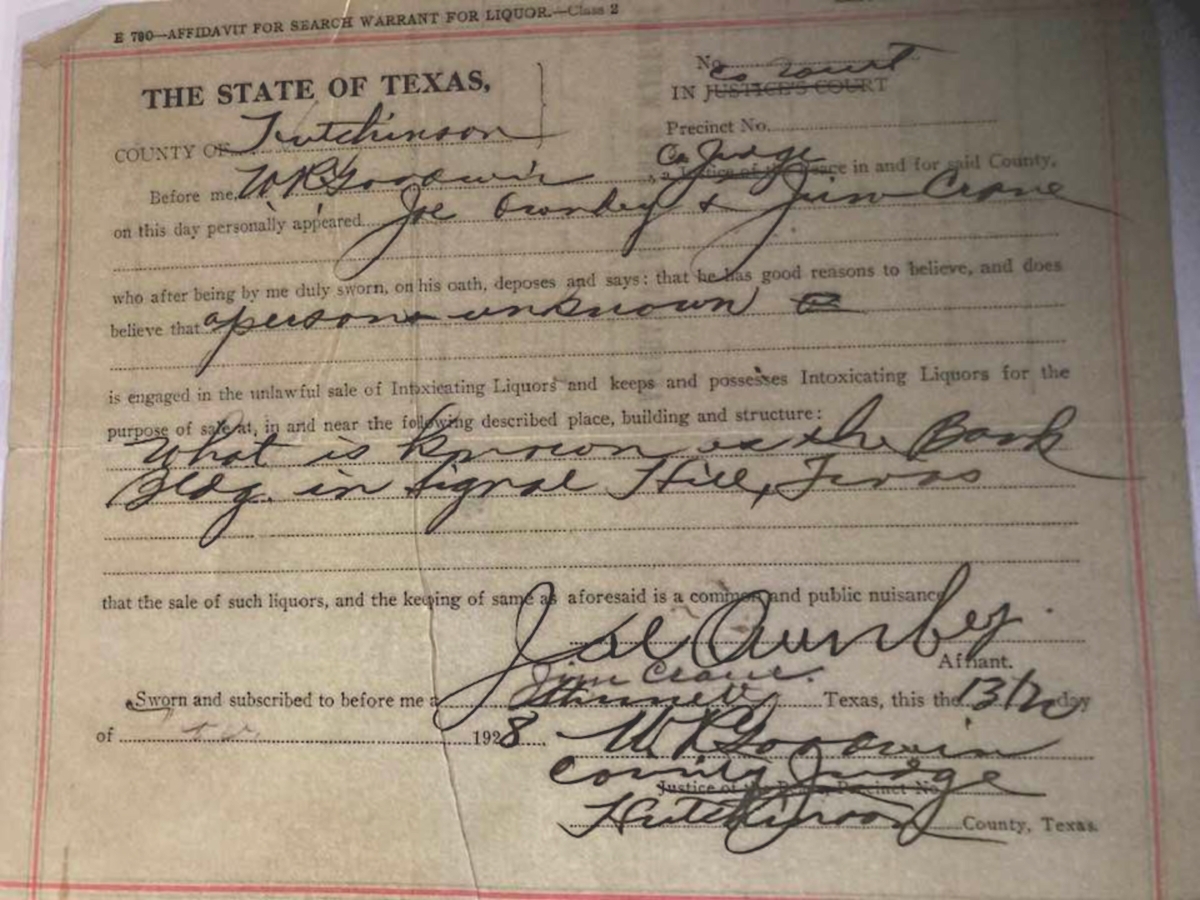 E 790—AFFIDAVIT FOR SEARCH WARRANT FOR LIQUOR.—Class 2
THE STATE OF TEXAS,
No. Co Court
IN JUSTICE'S COURT
COUNTY OF Hutchinson
Precinct No.
Co Judge
Before me, W R Goodwin, a Justice of the Peace in and for said County,
on this day personally appeared Joe Ownbey & Jim Crane
who after being by me duly sworn, on his oath, deposes and says: that he has good reasons to believe, and does
believe that a person unknown
is engaged in the unlawful sale of Intoxicating Liquors and keeps and possesses Intoxicating Liquors for the
purpose of sale at, in and near the following described place, building and structure:
What is known as the Bank
Bldg. in Signal Hill, Texas
that the sale of such liquors, and the keeping of same as aforesaid is a common and public nuisance
Joe Ownbey
Affiant.
Jim Crane.
Sworn and subscribed to before me a Stinnett Texas, this the 13th day
of 1928 W R Goodwin
County Judge
Justice of the Peace Precinct No.
Hutchinson County, Texas.